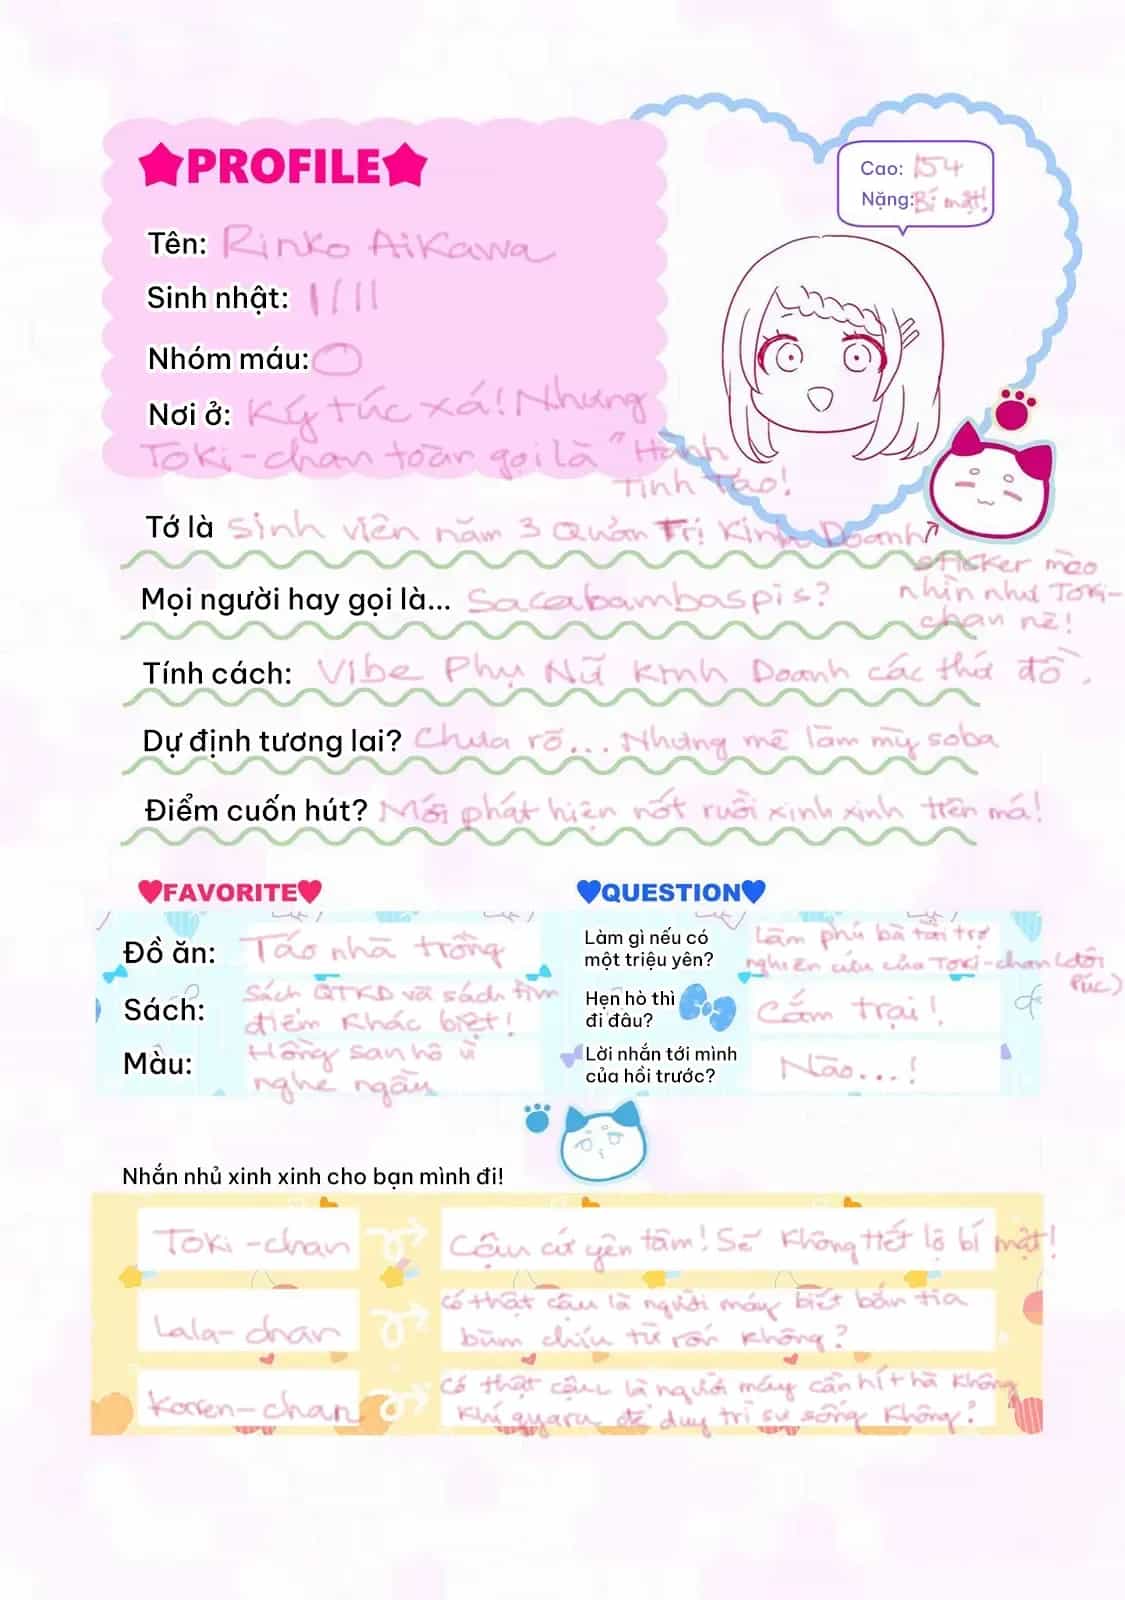 ★PROFILE★
Cao: 154
Nặng: Bí mật!
Tên: Rinko Aikawa
Sinh nhật: 1/11
Nhóm máu: O
Nơi ở: Ký túc xá! Nhưng
Toki-chan toàn gọi là "Hành
Tinh Táo!
Tớ là sinh viên năm 3 Quản Trị Kinh Doanh
sticker mèo
nhìn như Toki-
chan nè!
Mọi người hay gọi là... Sacabambaspis?
Tính cách: Vibe Phụ Nữ Kinh Doanh các thứ đồ.
Dự định tương lai? Chưa rõ... Nhưng mê làm mỳ soba
Điểm cuốn hút? Mới phát hiện nốt ruồi xinh xinh trên má!
♥FAVORITE♥
Đồ ăn: Táo nhà trồng
Sách: Sách QTKD và sách tìm
điểm khác biệt!
Màu: Hồng san hô vì
nghe ngầu
♥QUESTION♥
Làm gì nếu có
một triệu yên?
Làm phú bà tài trợ
nghiên cứu của Toki-chan (dôi
lúc)
Hẹn hò thì
đi đâu?
Cắm trại!
Lời nhắn tới mình
của hồi trước?
Não...!
Nhắn nhủ xinh xinh cho bạn mình đi!
Toki-chan
Cậu cứ yên tâm! Sẽ không tiết lộ bí mật!
Lala-chan
Có thật cậu là người máy biết bắn tia
bùm chíu từ rốn không?
Karen-chan
Có thật cậu là người máy cần hít hà không
khí gyaru để duy trì sự sống không?